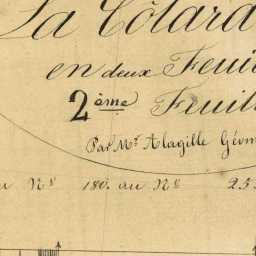 La Côtard
en deux Feuil
2ème Feuill
Par Mr. Alagille Géom
au No 180. au No 25